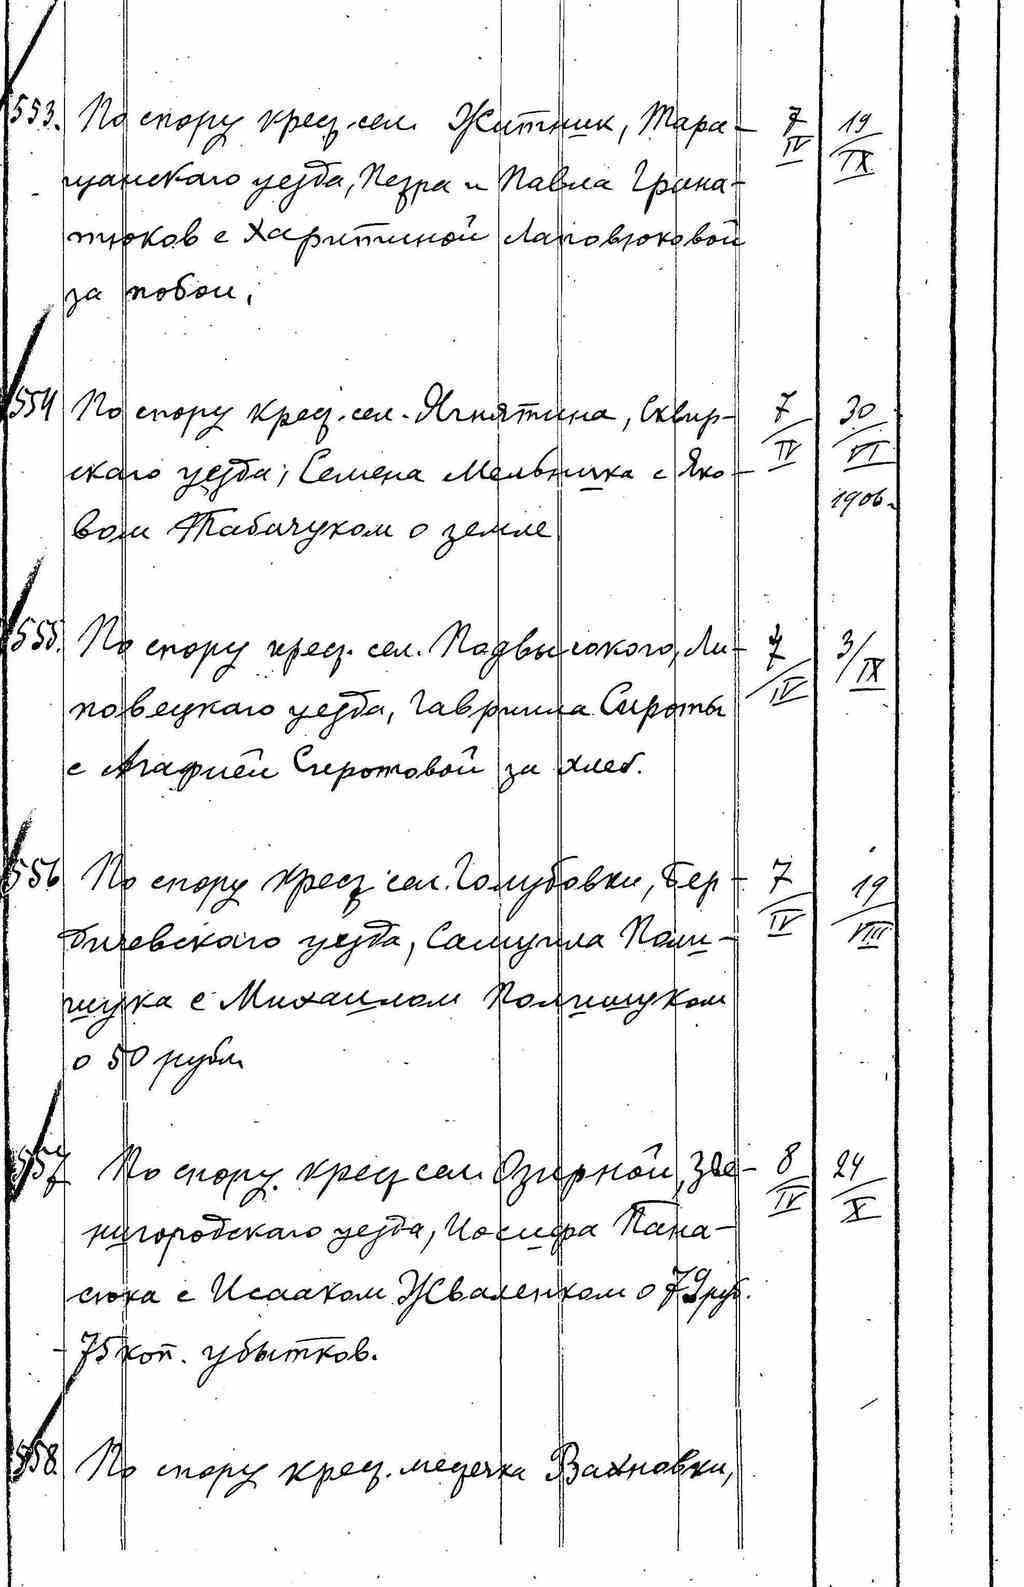 553. По спору крест. сел. Житник, Тара- 7/IV 19/IX
щанскаго уезда, Петра и Павла Грана-
тюков с Харитиной Лаповюковой
за побои.
554 По спору крест. сел. Ягнятина, Сквир- 7/IV 30/VI 1906.
скаго уезда, Семена Мельничка с Яко-
вом Табачуком о земле
555. По спору крест. сел. Подвысокого, Ли- 7/IV 3/IX
повецкаго уезда, Гавриила Сироты
с Агафией Сиротовой за хлеб.
556 По спору крест. сел. Голубовки, Бер- 7/IV 19/VIII
дичевскаго уезда, Самуила Поли-
щука с Михаилом Полищуком
о 50 рубл.
557 По спору крест. сел. Озирной, Зве- 8/IV 24/X
нигородскаго уезда, Иосифа Пана-
сюка с Исааком Жваленком о 79 руб.
75 коп. убытков.
558. По спору крест. местечка Вахновки,